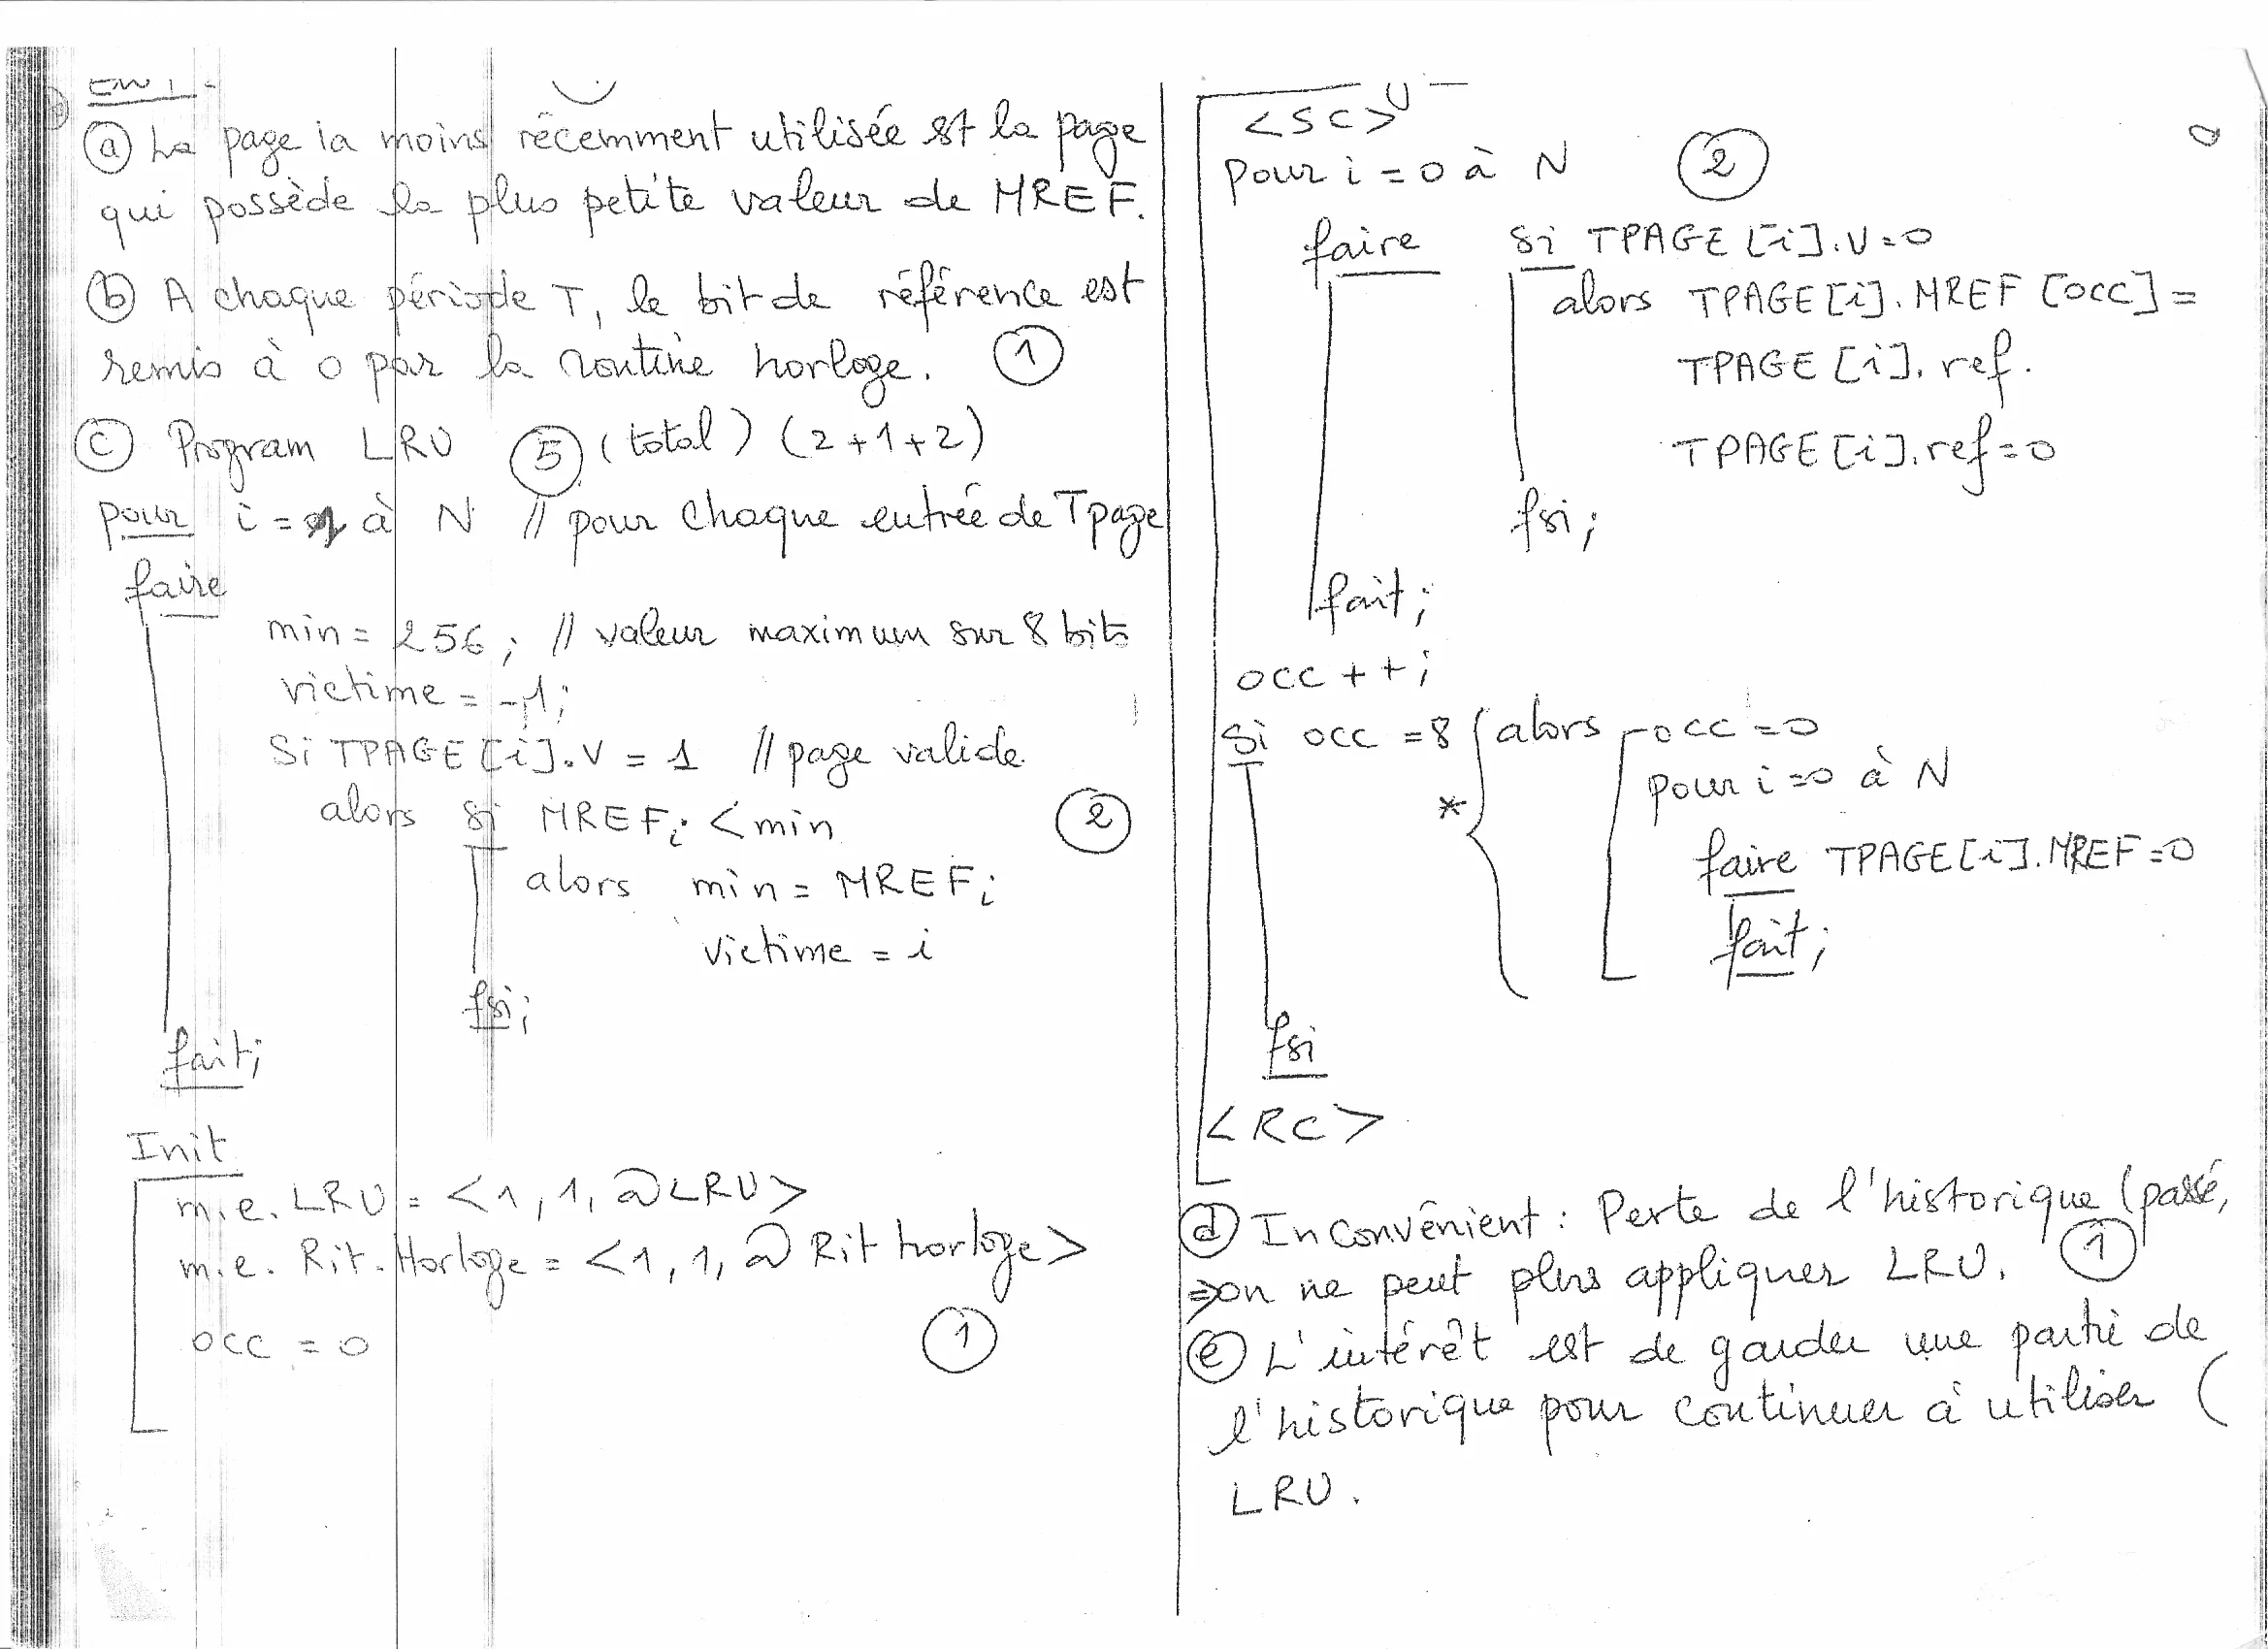 ⓐ La page la moins récemment utilisée est la page
qui possède la plus petite valeur de MREF.
ⓑ A chaque période T, le bit de référence est
remis à 0 par la routine horloge. ①
ⓒ Program LRU ⑤ (total) (2+1+2)
pour i = à N // pour chaque entrée de Tpage
faire
min = 256; // valeur maximum sur 8 bits
victime = -1;
Si TPAGE[i].V = 1 // page valide
alors si MREFi < min ②
alors min = MREFi
victime = i
fsi;
fait;
Init
m.e. LRU = <1, 1, @LRU>
m.e. Rit.Horloge = <1, 1, @ Rit horloge>
occ = 0 ①
<SC>
pour i = 0 à N ②
faire si TPAGE[i].V=0
alors TPAGE[i].MREF[occ] =
TPAGE[i].ref.
TPAGE[i].ref=0
fsi;
fait;
occ++;
Si occ = 8 { alors occ = 0
* pour i=0 à N
faire TPAGE[i].MREF=0
fait;
fsi
<RC>
ⓓ Inconvénient : Perte de l'historique (passé,
⇒ on ne peut plus appliquer LRU. ①
ⓔ L'intérêt est de garder une partie de
l'historique pour continuer à utiliser (
LRU.